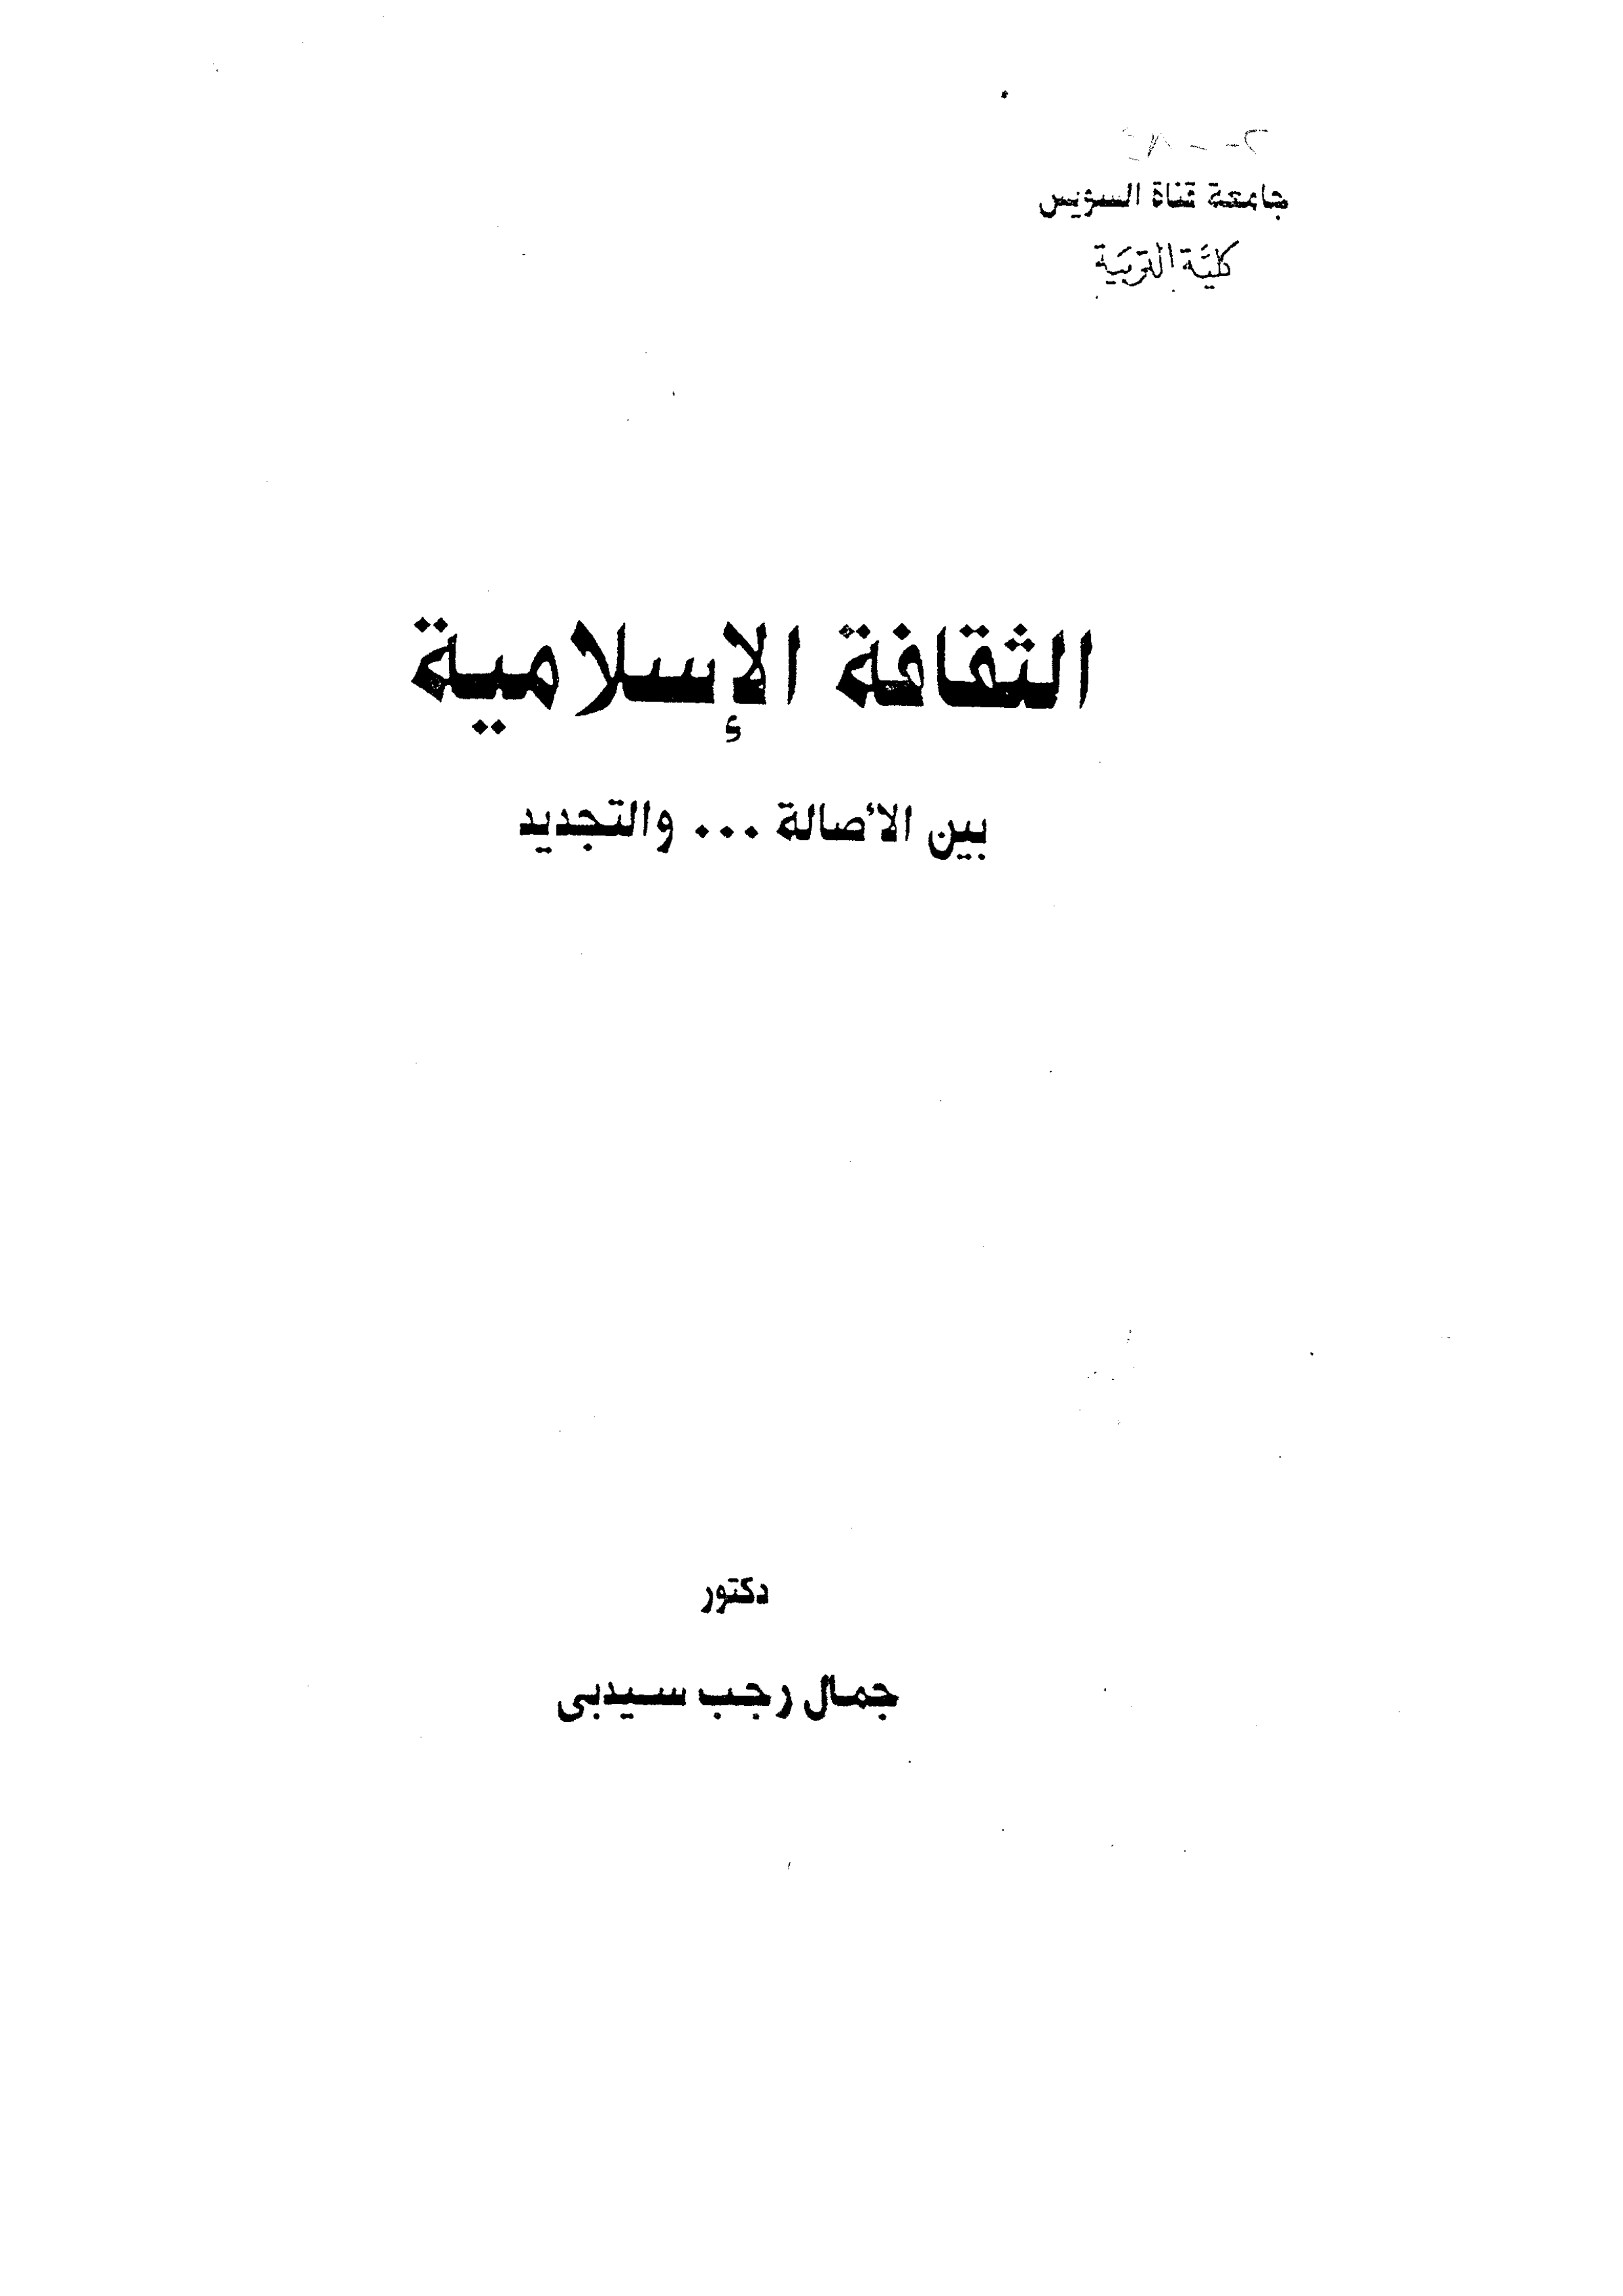 جامعة قناة السويس
كلية التربية
الثقافة الإسلامية
بين الأصالة ... والتجديد
دكتور
جمال رجب سيدبى